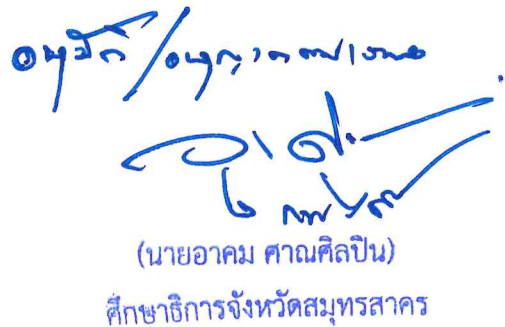 อนุมัติ/อนุญาตตามเสนอ
(นายอาคม ศาณศิลปิน)
ศึกษาธิการจังหวัดสมุทรสาคร